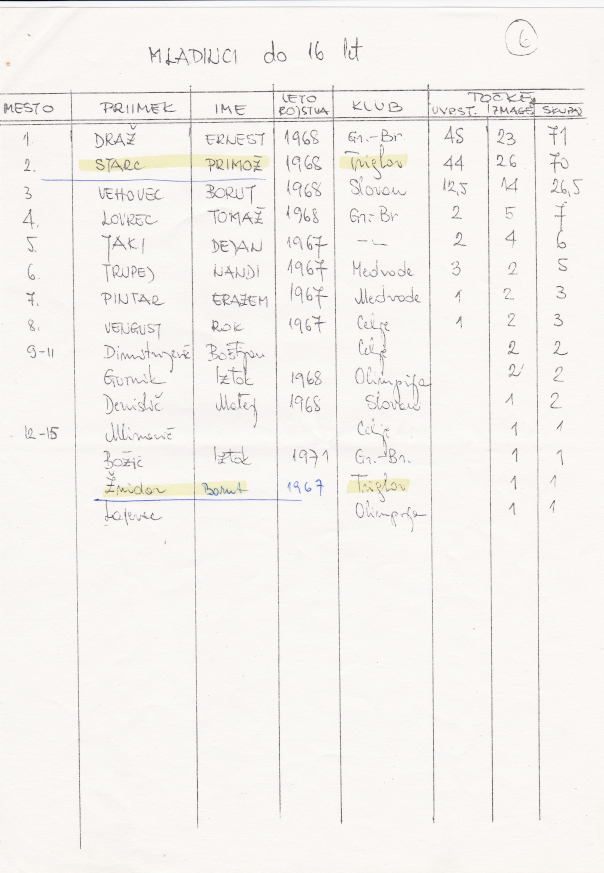 6
MLADINCI do 16 let
MESTO PRIIMEK IME LETO ROJSTVA KLUB TOČKE UVRST. ZMAGE SKUPAJ
1. DRAŽ ERNEST 1968 Gr.-Br 48 23 71
2. STARC PRIMOŽ 1968 Triglav 44 26 70
3 VEHOVEC BORUT 1968 Slovan 12,5 14 26,5
4. LOVREC TOMAŽ 1968 Gr.-Br 2 5 7
5. JAKI DEJAN 1967 -"- 2 4 6
6. TRUPEJ NANDI 1967 Medvode 3 2 5
7. PINTAR ERAZEM 1967 Medvode 1 2 3
8. VENGUST ROK 1967 Celje 1 2 3
9-11 Boštjan Celje 2 2
Gornik Iztok 1968 Olimpija 2 2
Matej 1968 Slovan 1 2
12-15 Celje 1 1
Božič Iztok 1971 Gr.-Br. 1 1
Žnidar Borut 1967 Triglav 1 1
Lajevec Olimpija 1 1